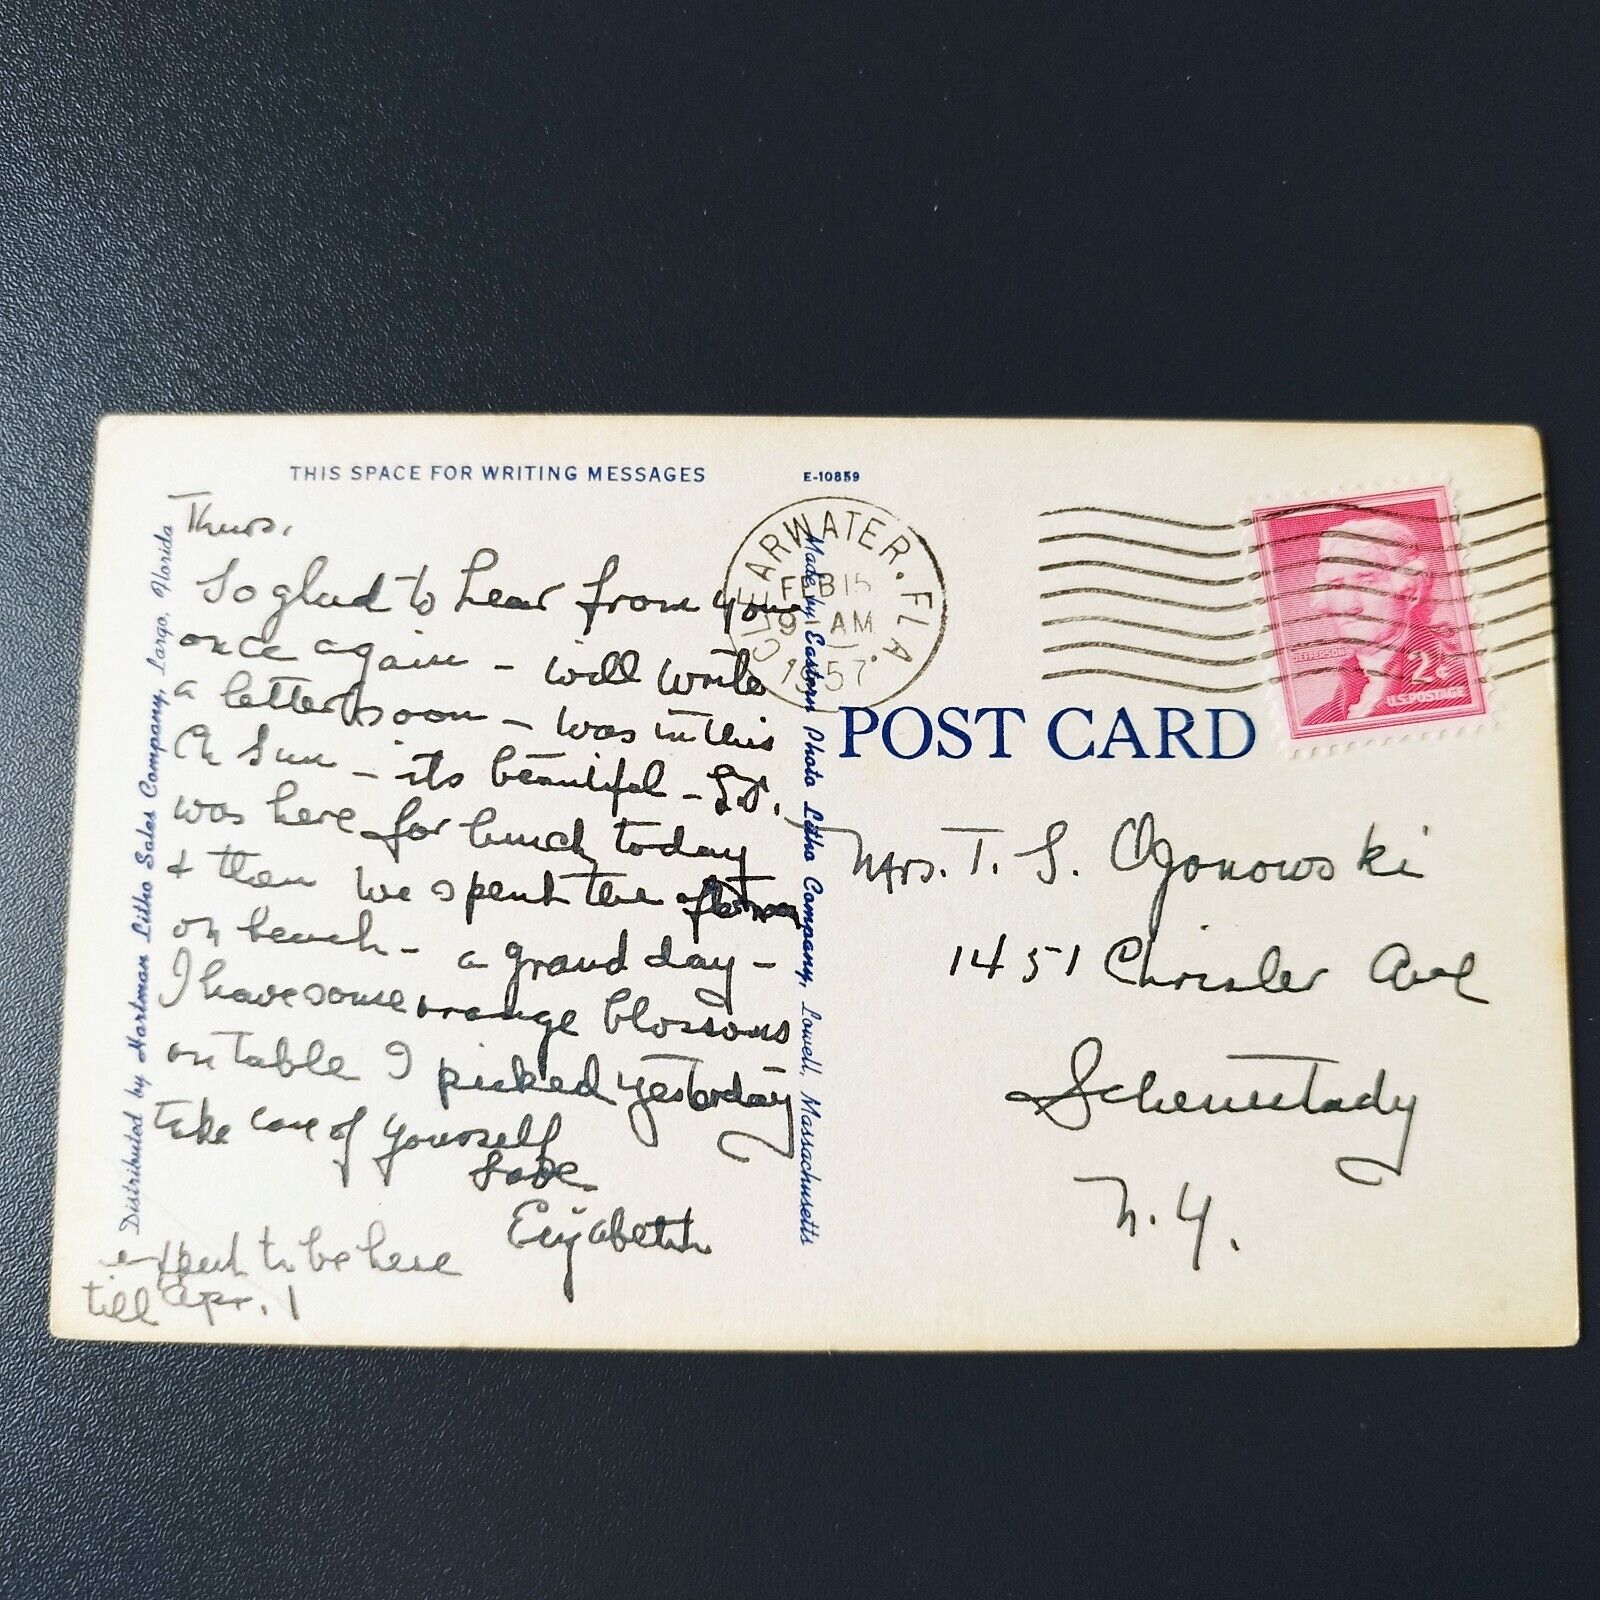 THIS SPACE FOR WRITING MESSAGES
E-10859
Thurs.
So glad to hear from you
once again - will write
a letter soon - was in this
Ch Sun - its beautiful -
was here for lunch today
& then we spent the afternoon
on beach - a grand day -
I have some orange blossoms
on table I picked yesterday
take care of yourself
Love
Elizabeth
expect to be here
till Apr. 1
Distributed by Hartman Litho Sales Company, Largo, Florida
Made by Eastern Photo Litho Company, Lowell, Massachusetts
CLEARWATER. FLA.
FEB 15
9 AM
1957
JEFFERSON
2¢
U.S. POSTAGE
POST CARD
Mrs. T. S. Ogonowski
1451 Chrisler Ave
Schenectady
N.Y.